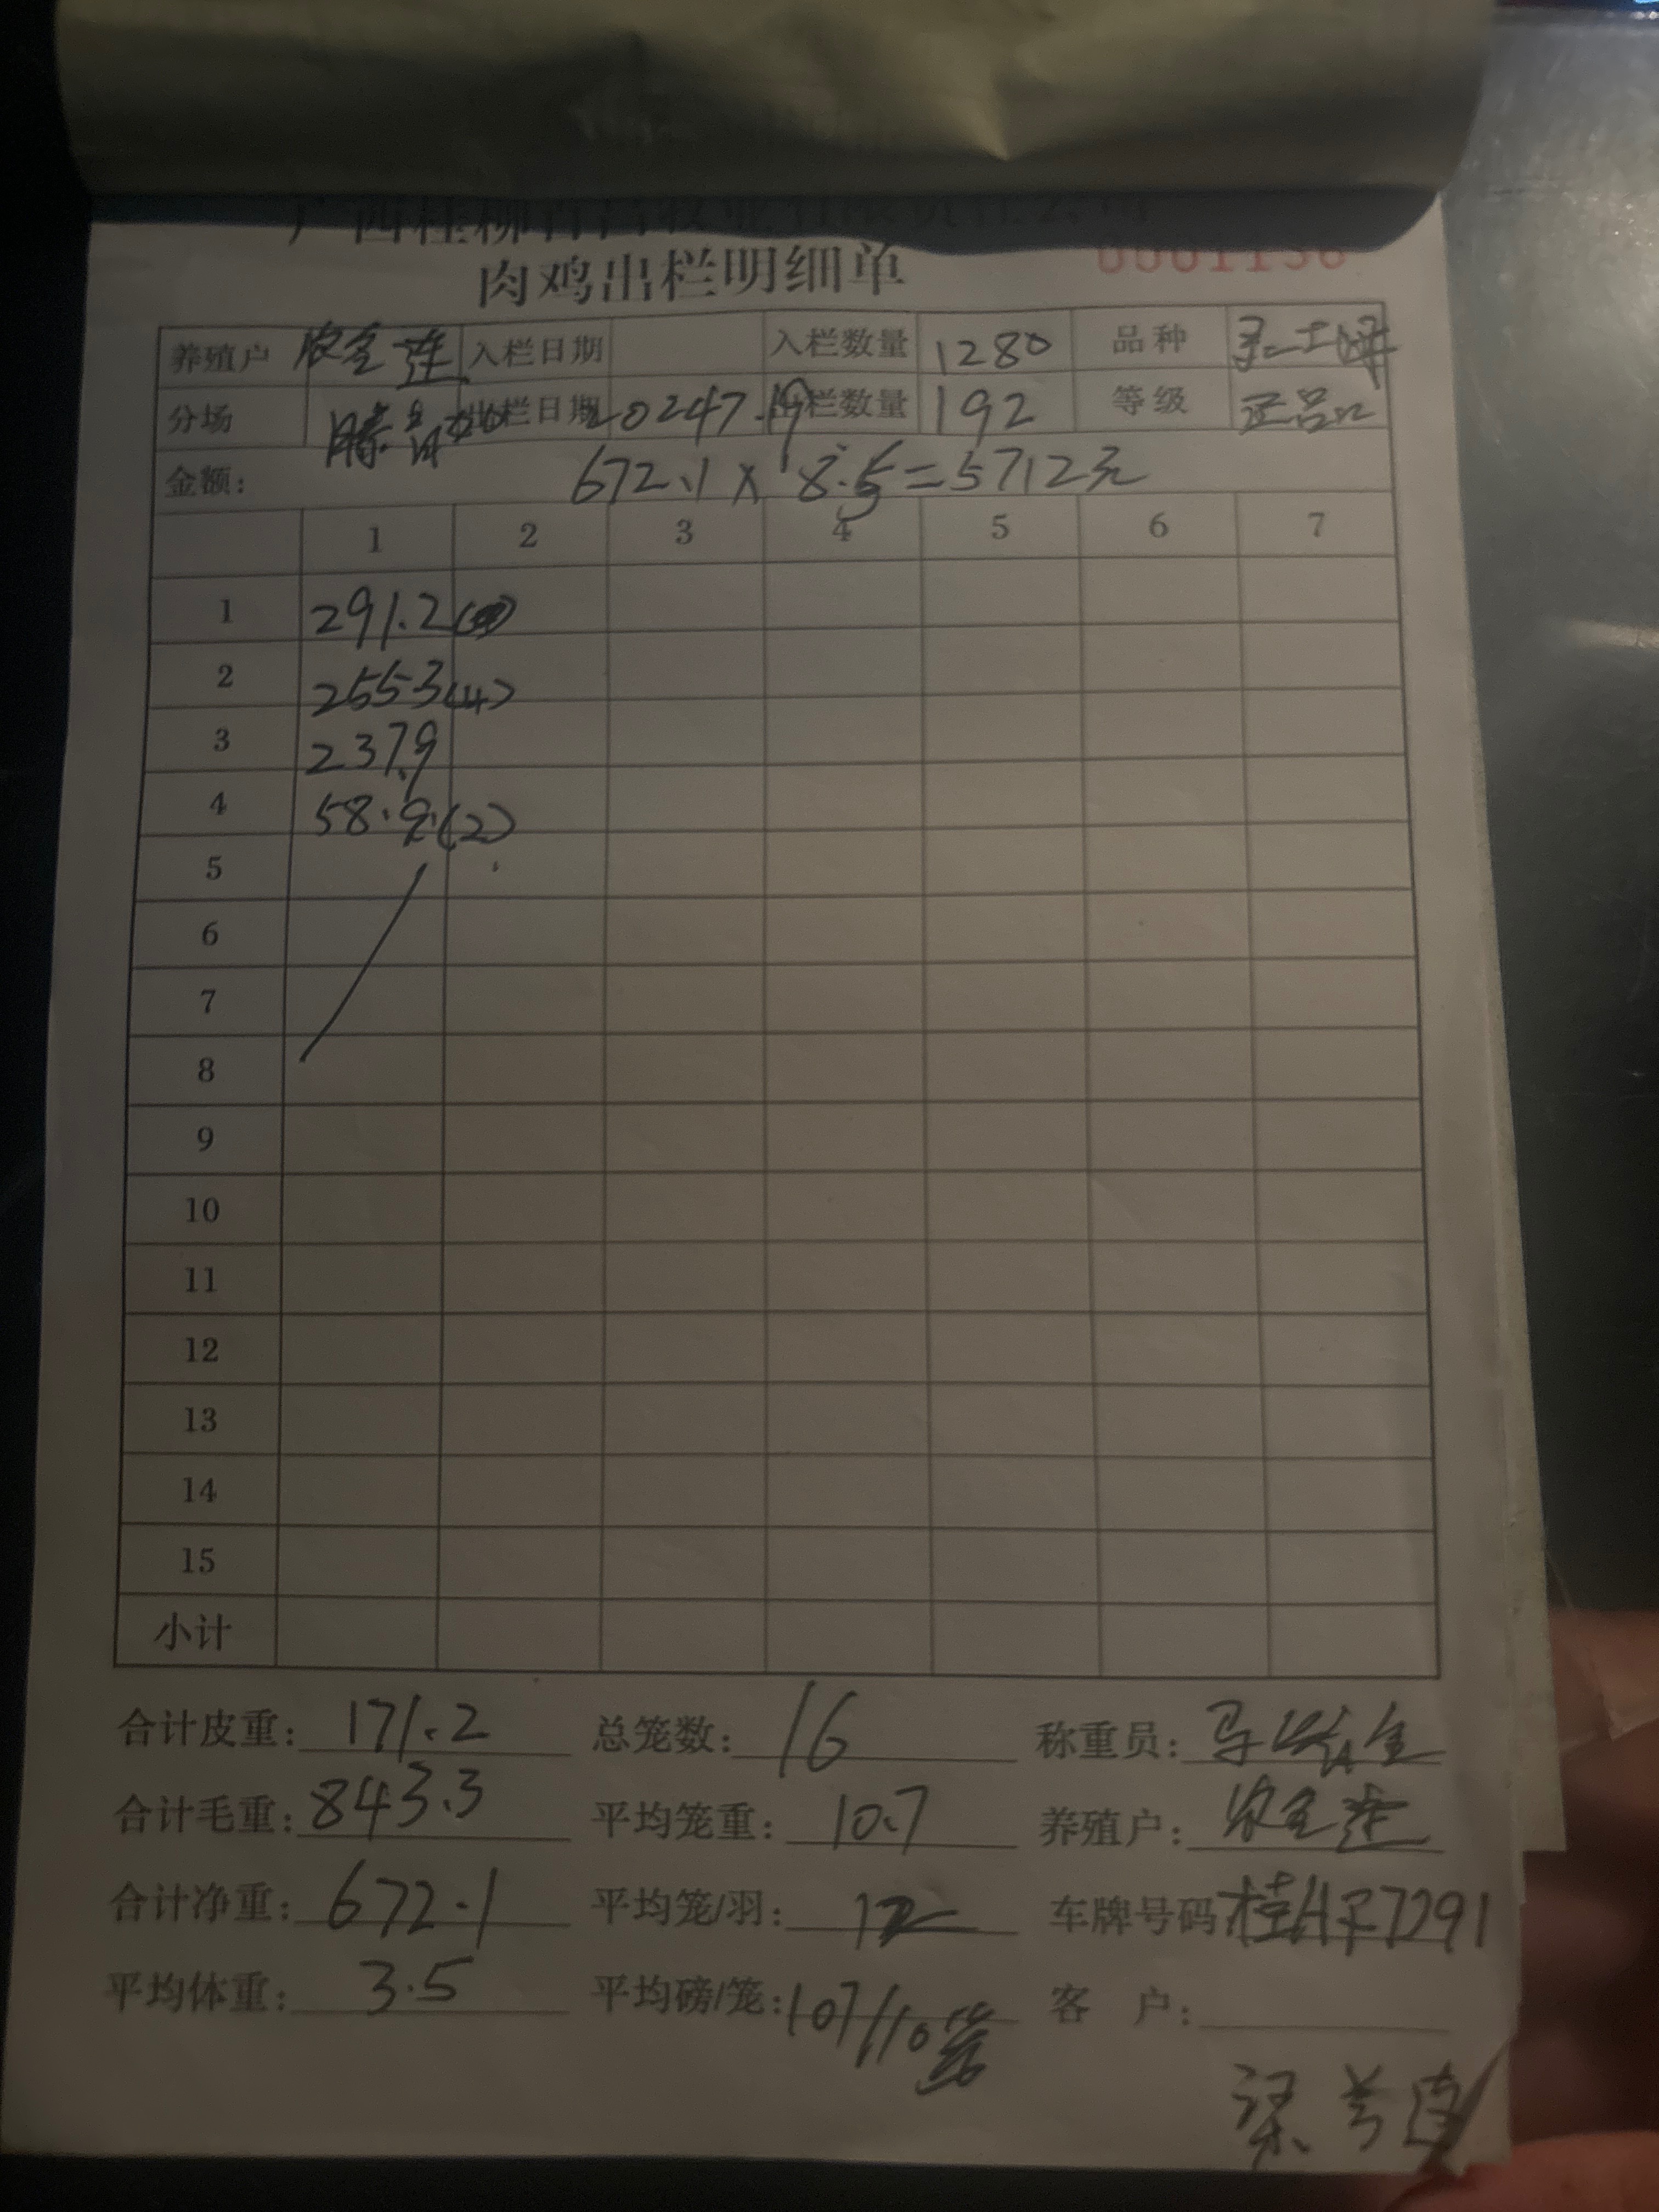 肉鸡出栏明细单 0001136
养殖户 农金莲 入栏日期 入栏数量 1280 品种
分场 出栏日期 20247.19 出栏数量 192 等级 正品
金额: 672.1×8.5=5712元
1 2 3 4 5 6 7
1 291.2
2 2553(4)
3 237.9
4 58.9(2)
5
6
7
8
9
10
11
12
13
14
15
小计
合计皮重: 171.2 总笼数: 16 称重员:
合计毛重: 843.3 平均笼重: 10.7 养殖户: 农金莲
合计净重: 672.1 平均笼/羽: 12 车牌号码
平均体重: 3.5 平均磅/笼: 107/10 客 户: